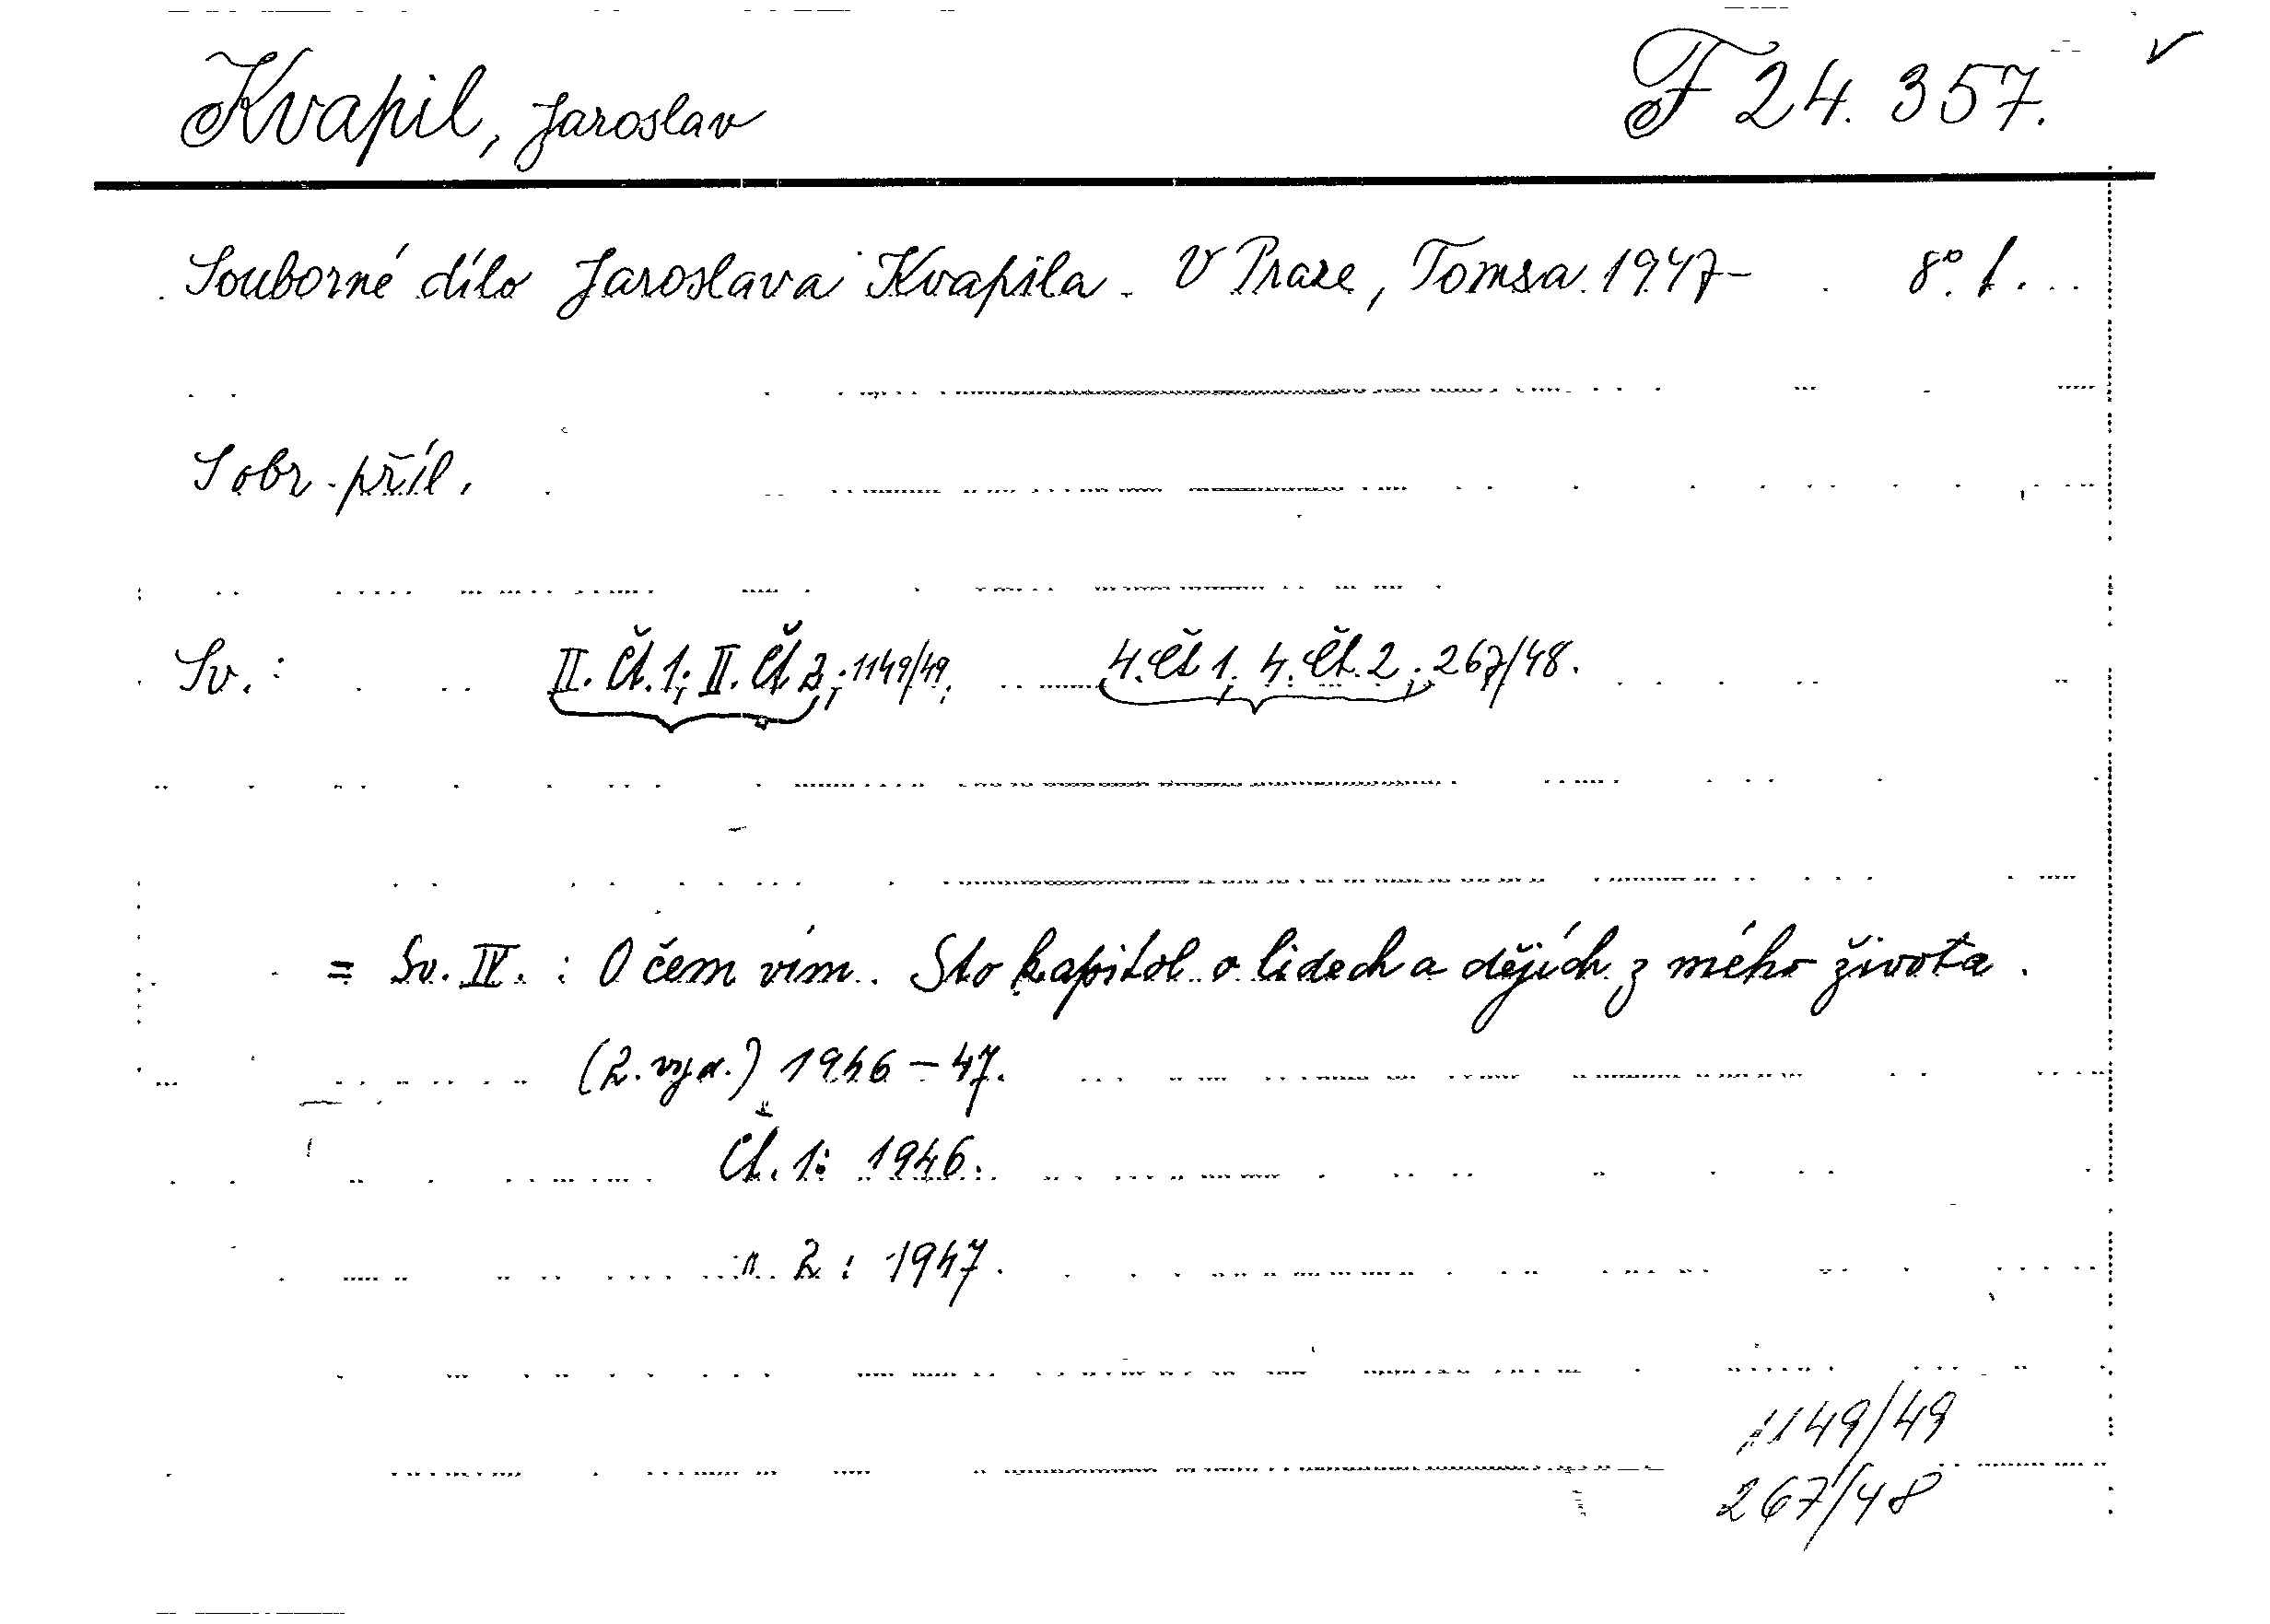 Kvapil, Jaroslav F 24.357.
Souborné dílo Jaroslava Kvapila. V Praze, Tomsa 1947- 8°.
S obr. příl.
Sv.: II. Čt. 1; II. Čt 2; 1149/49; 4. Čt 1, 4. Čt. 2; 267/48.
= Sv. IV. : O čem vím. Sto kapitol o lidech a dějích z mého života.
(2. vyd.) 1946-47.
Čt. 1: 1946.
" 2: 1947.
1149/49
267/48